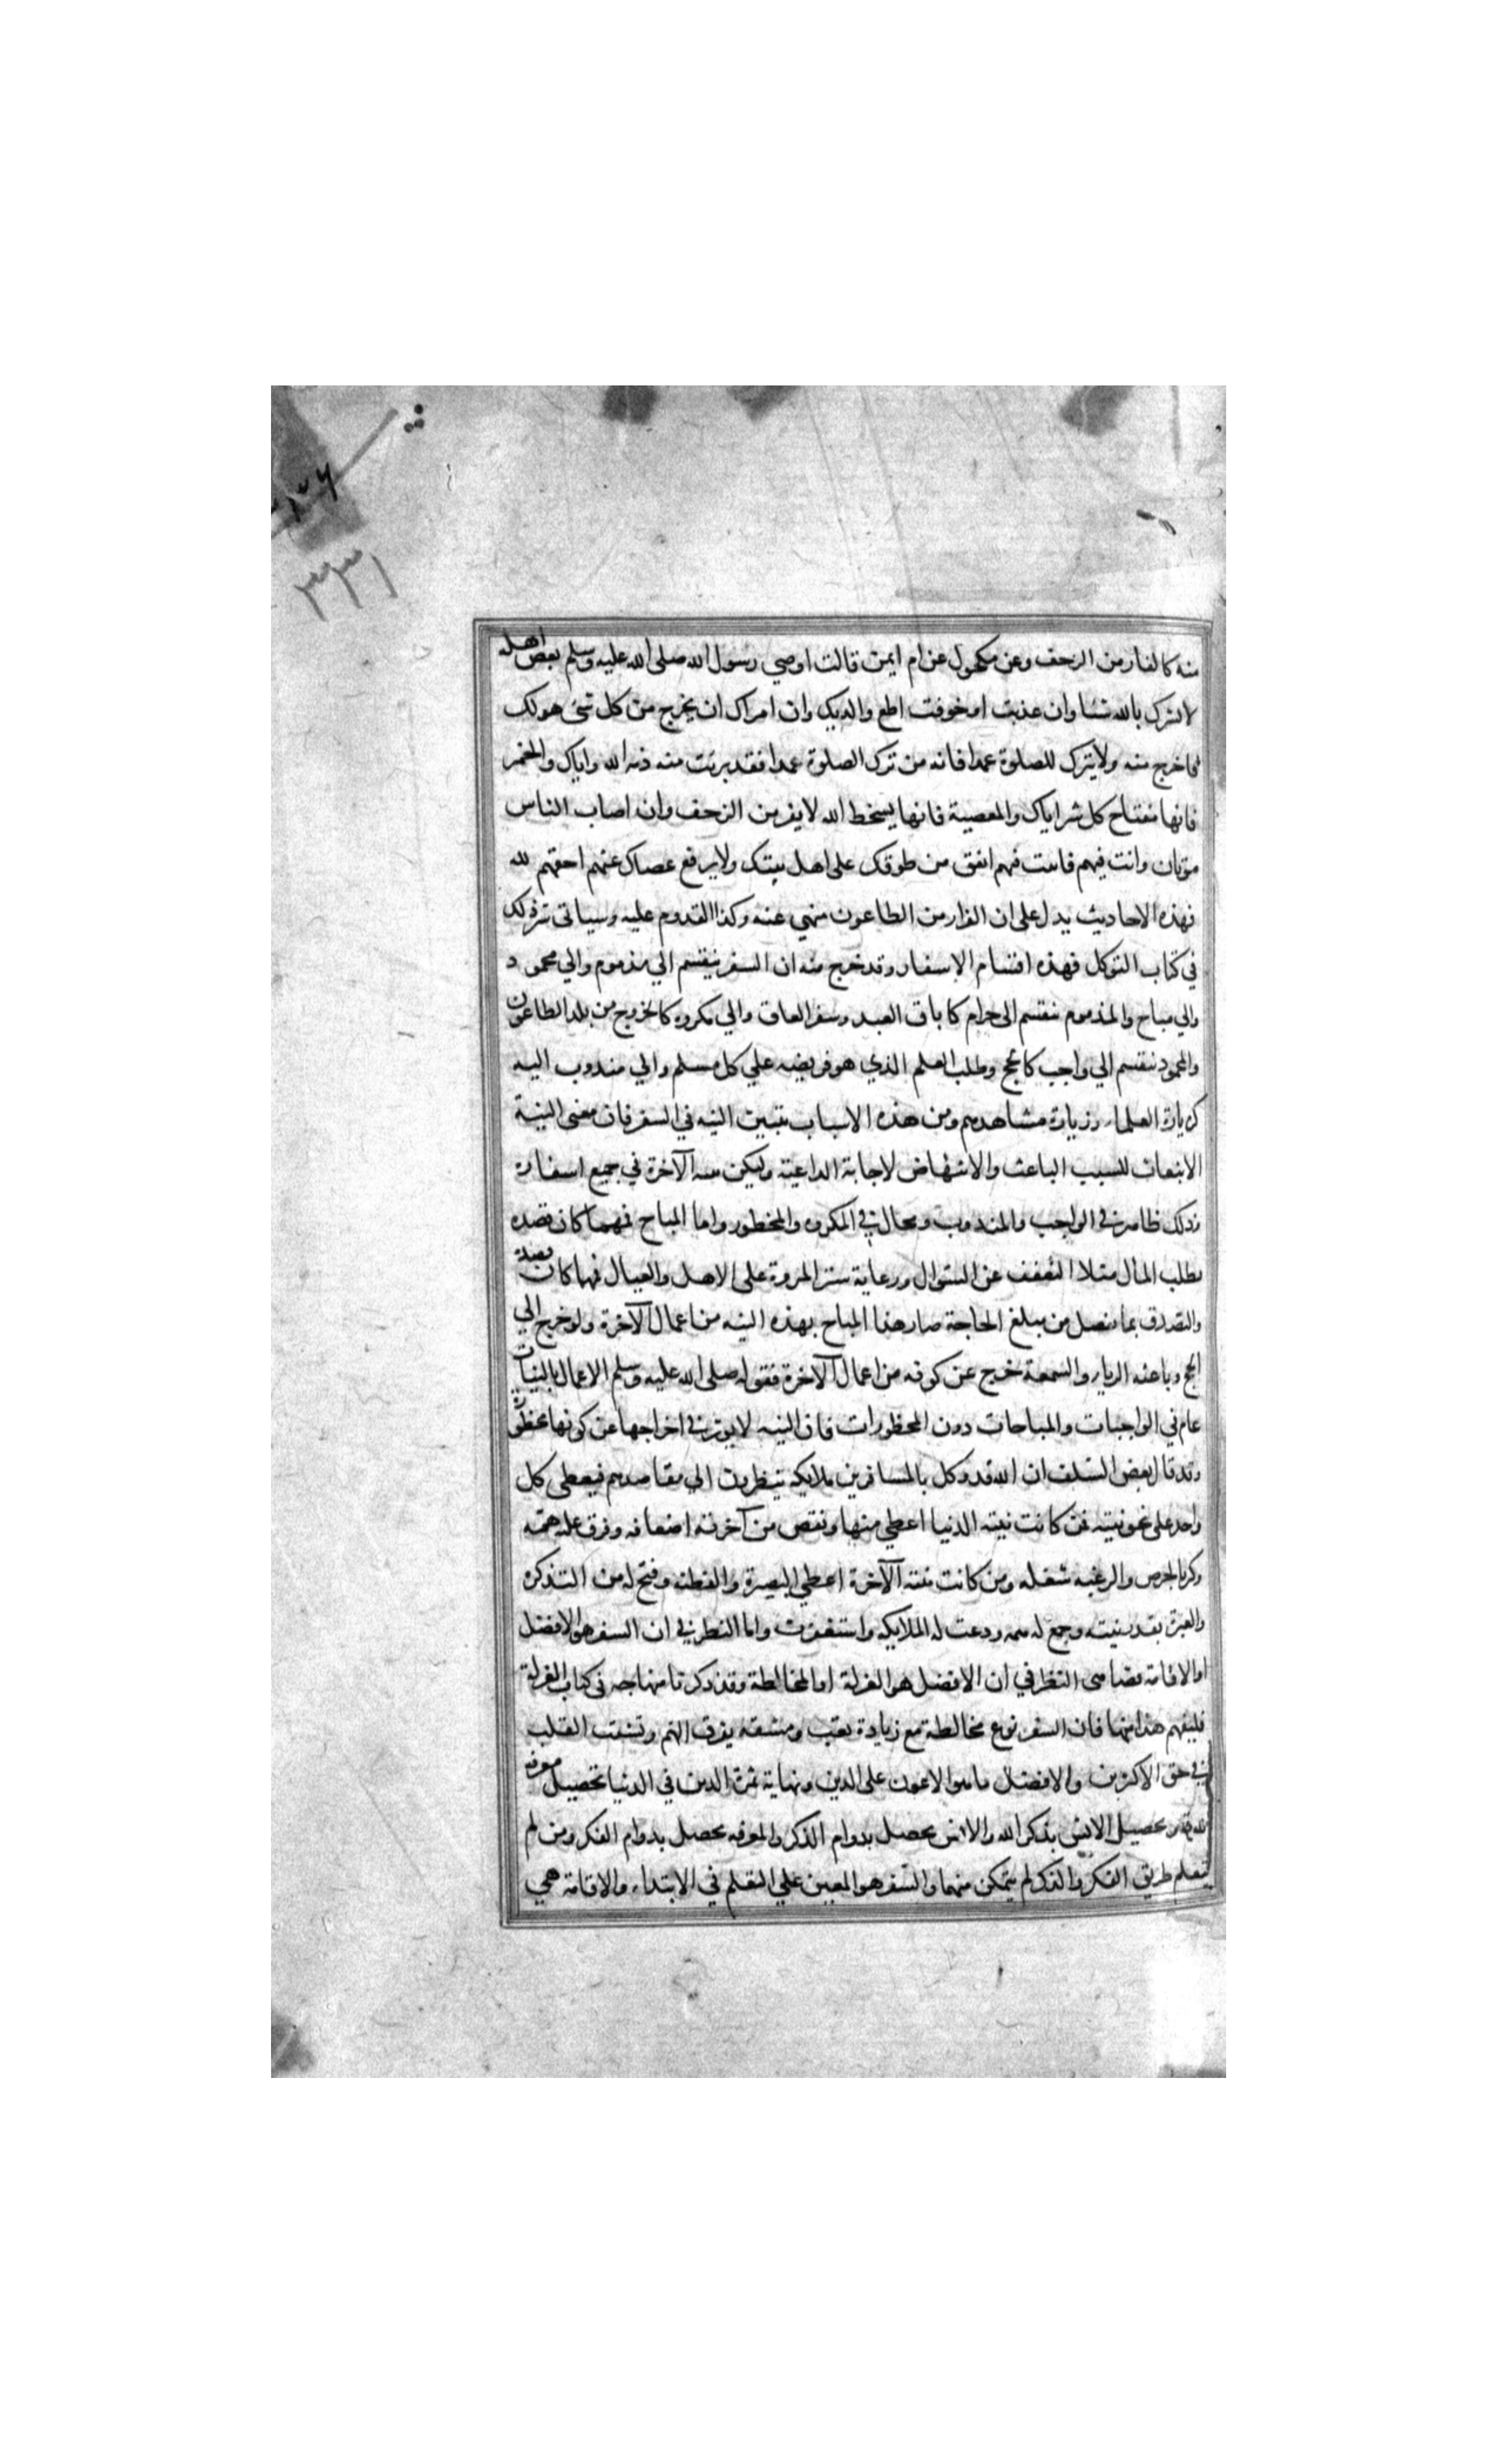 ٣٣١
منه كالفار من الزحف وعن مكحول عن ام ايمن قالت اوصي رسول الله صلى الله عليه وسلم بعض اهله
لا تشرك بالله شئا وان عذبت او خوفت اطع والديك وان امراك ان يخرج من كل شئ هو لك
فاخرج منه ولا يترك للصلوة عمدا فانه من ترك الصلوة عمدا فقد برئت منه ذمه الله واياك والخمر
فانها مفتاح كل شر اياك والمعصية فانها يسخط الله لا يفر من الزحف وان اصاب الناس
موتان وانت فيهم فاثبت فيهم انفق من طولك على اهل بيتك ولا يرفع عصاك عنهم اخفهم لله
فهذه الاحاديث يدل على ان الفرار من الطاعون منهي عنه وكذا القدوم عليه وسياتى سر ذلك
في كتاب التوكل فهذه اقسام الاسفار وقد خرج منه ان السفر ينقسم الي مذموم والي محمود
والي مباح والمذموم ينقسم الى حرام كاباق العبد وسفر العاق والي مكروه كالخروج من بلد الطاعون
والمحمود ينقسم الي واجب كالحج وطلب العلم الذي هو فريضه علي كل مسلم والي مندوب اليه
كزيارة العلماء وزيارة مشاهدهم ومن هذه الاسباب يتبين النيه في السفر فان معنى النية
الانبعاث للسبب الباعث والانتهاض لاجابة الداعية وليكن نيته الآخرة في جميع اسفاره
وذلك ظاهر في الواجب والمندوب ومحال في المكروه والمحظور واما المباح فمهما كان قصده
بطلب المال مثلا التعفف عن السئوال ورعاية ستر المروة على الاهل والعيال فمهما كان قصده
والتصدق بما يفضل من مبلغ الحاجة صار هذا المباح بهذه النيه من اعمال الآخرة ولو خرج الي
الحج وباعثه الرياء والسمعة خرج عن كونه من اعمال الآخرة فقوله صلى الله عليه وسلم الاعمال بالنيات
عام في الواجبات والمباحات دون المحظورات فان النيه لا يوثر في اخراجها عن كونها محظورة
وقد قال بعض السلف ان الله قد وكل بالمسافرين ملايكه ينظرون الي مقاصدهم فيعطى كل
واحد على نحو نيته فمن كانت نيته الدنيا اعطي منها ونقص من آخرته اضعافه وفرق عليه همه
وكثر بالحرص والرغبه شغله ومن كانت نيته الآخرة اعطي البصيرة والفطنه وفتح له من التذكره
والعبرة بقدر نيته وجمع له همه ودعت له الملايكه واستغفرت واما النظر في ان السفر هو الافضل
او الاقامه يضاهى النظر في ان الافضل هو العزلة او المخالطة وقد ذكرنا منهاجه في كتاب العزلة
فليفهم هذا منها فان السفر نوع مخالطة مع زيادة تعب ومشقه يفرق الهم وتشتت القلب
في حق الاكثرين والافضل ما هو الاعون على الدين ونهاية ثمرة الدين في الدنيا تحصيل معرفه
الله تعالى وتحصيل الانس بذكر الله والانس يحصل بدوام الذكر والمعرفه يحصل بدوام الفكر ومن لم
يتعلم طريق الفكر والذكر لم يتمكن منهما والسفر هو المعين علي التعلم في الابتداء والاقامة هي